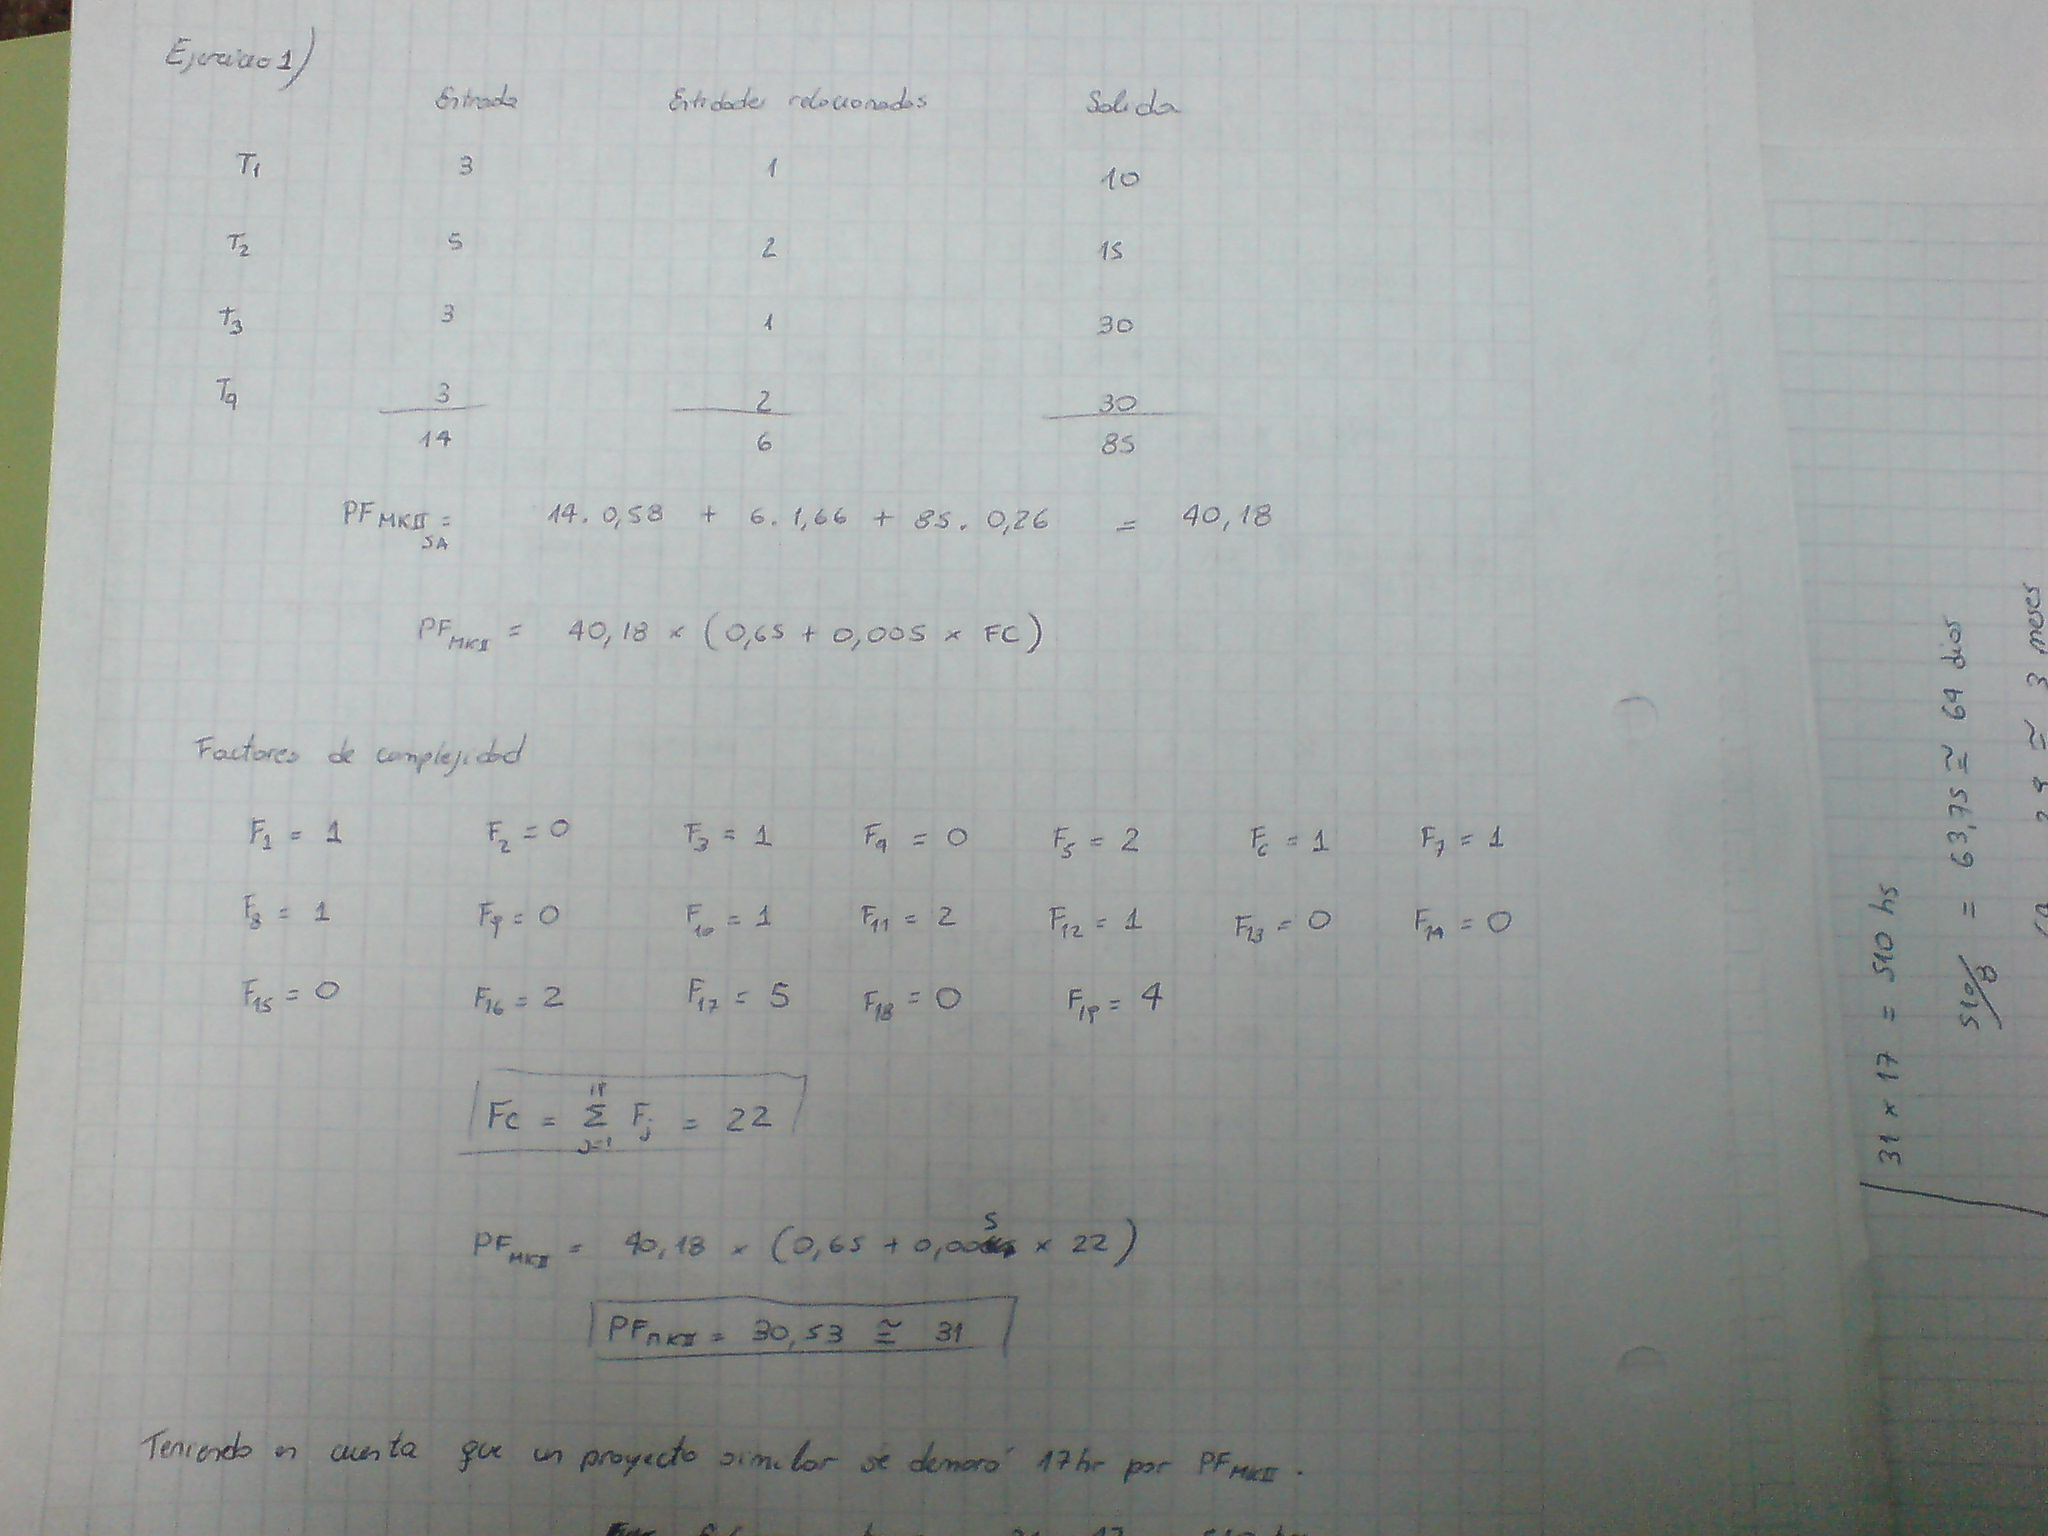 Ejercicio 1)
Entrada Entidades relacionadas Salida
T1 3 1 10
T2 5 2 15
T3 3 1 30
T4 3 2 30
14 6 85
PF MKII SA = 14 . 0,58 + 6 . 1,66 + 85 . 0,26 = 40,18
PF MKII = 40,18 × (0,65 + 0,005 × FC)
Factores de complejidad
F1 = 1 F2 = 0 F3 = 1 F4 = 0 F5 = 2 F6 = 1 F7 = 1
F8 = 1 F9 = 0 F10 = 1 F11 = 2 F12 = 1 F13 = 0 F14 = 0
F15 = 0 F16 = 2 F17 = 5 F18 = 0 F19 = 4
FC = Σ Fj = 22
PF MKII = 40,18 × (0,65 + 0,005 × 22)
PF MKII = 30,53 ≅ 31
Teniendo en cuenta que un proyecto similar se demoró 17hr por PF MKII.
31 × 17 = 510 hs
510/8 = 63,75 ≅ 64 dias
≅ 3 meses